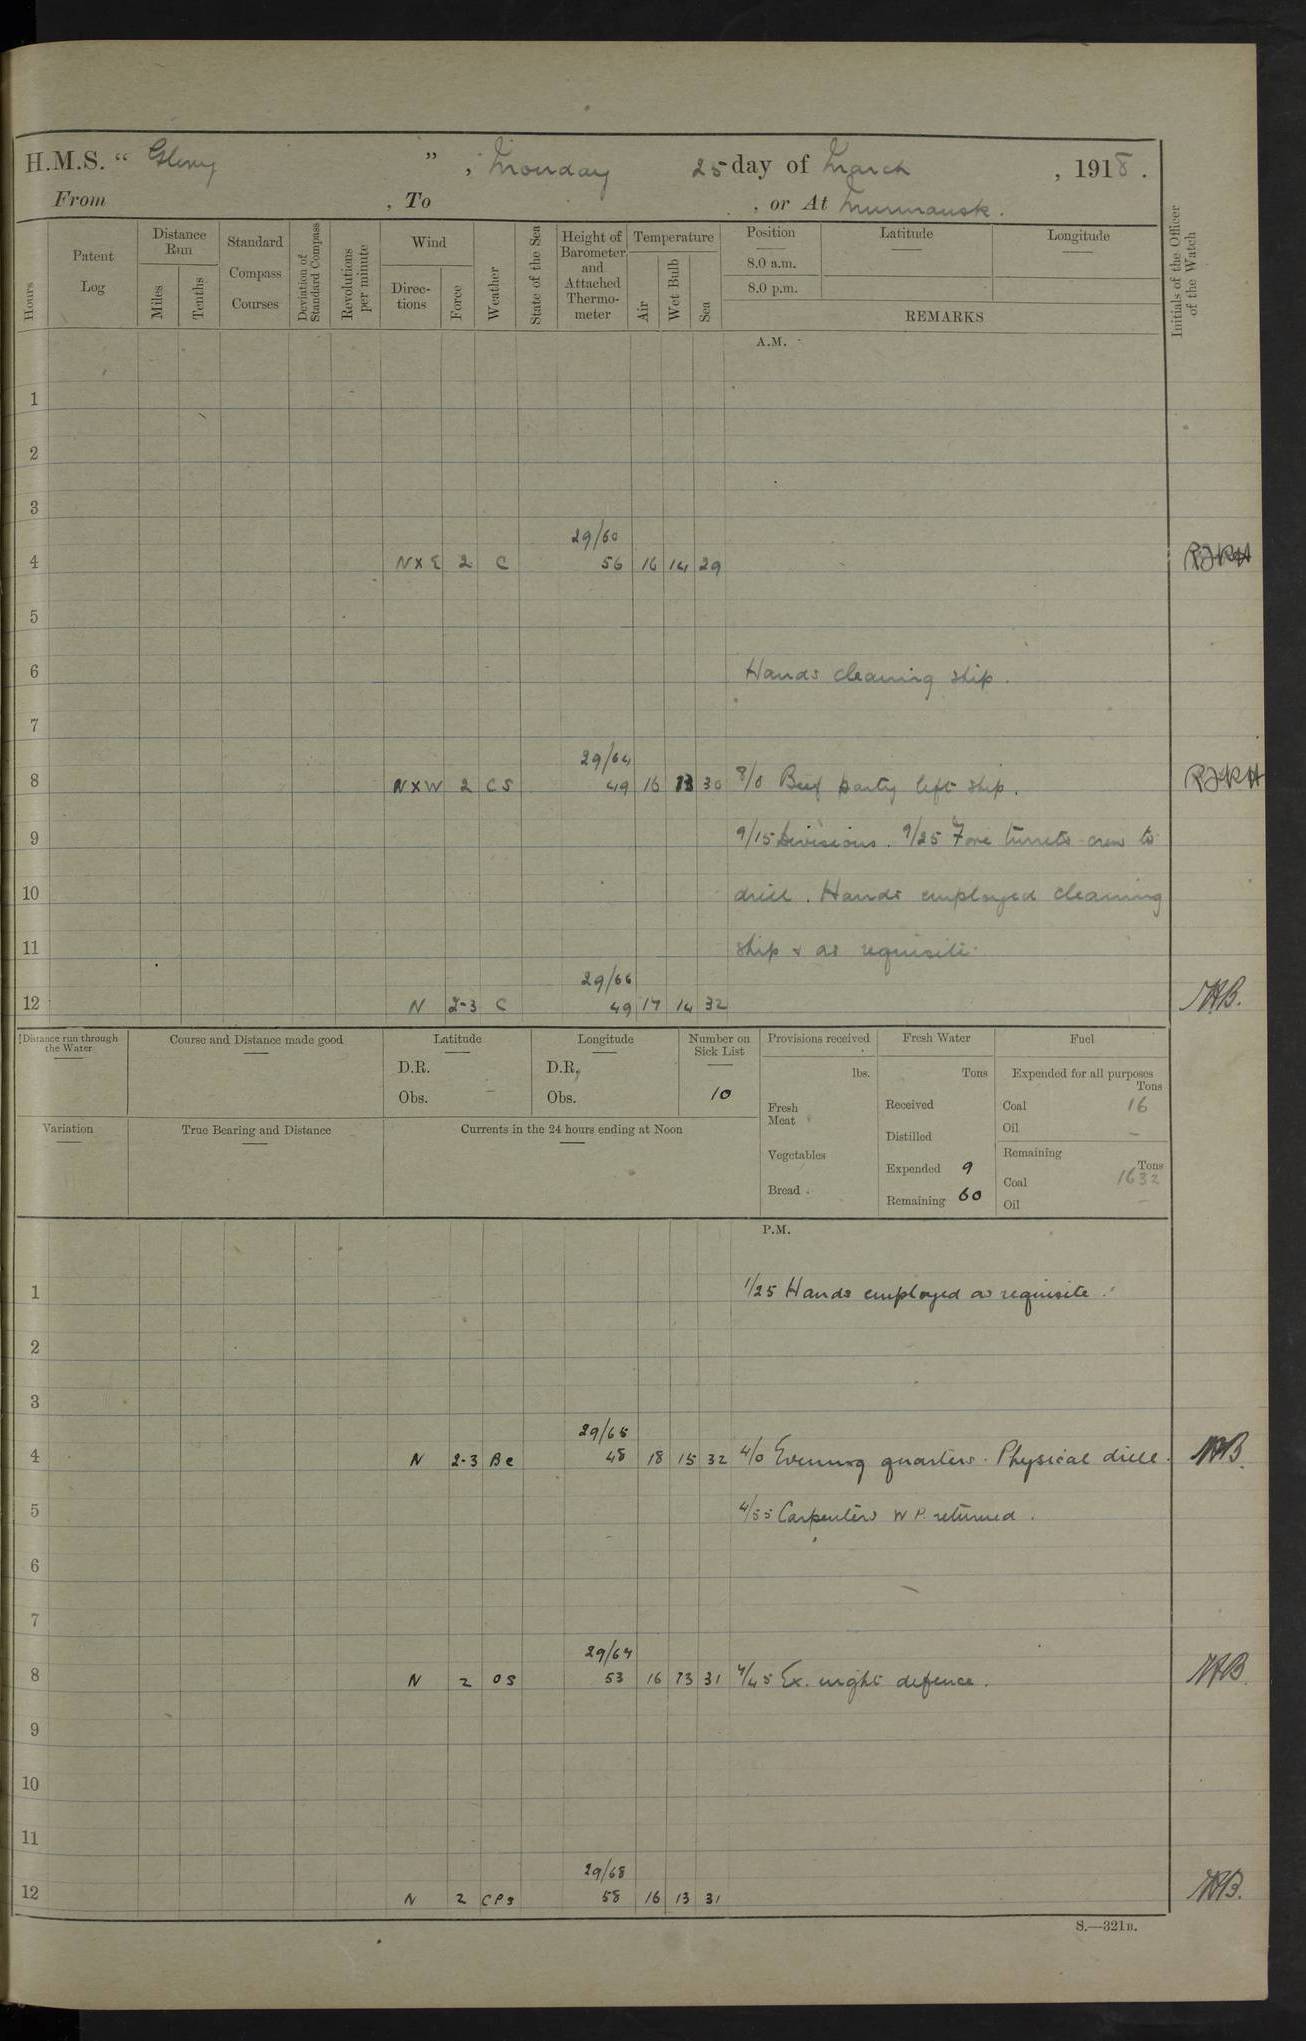 H.M.S. "Glory", Monday 25 day of March, 1918.
From , To , or At Murmansk.
Hours
Patent Log
Distance Run
Miles
Tenths
Standard Compass Courses
Deviation of Standard Compass
Revolutions per minute
Wind
Directions
Force
Weather
State of the Sea
Height of Barometer and Attached Thermometer
Temperature
Air
Wet Bulb
Sea
Position
Latitude
Longitude
8.0 a.m.
8.0 p.m.
REMARKS
Initials of the Officer of the Watch
A.M.
1
2
3
29/60
4 NXE 2 C 56 16 14 29
5
6 Hands cleaning ship.
7
29/64
8 NXW 2 CS 49 16 13 30 8/0 Beef party left ship.
9 9/15 Divisions. 9/25 Fore turrets crew to
10 drill. Hands employed cleaning
11 ship & as requisite.
29/66
12 N 2-3 C 49 17 14 32
Distance run through the Water
Course and Distance made good
Latitude
D.R.
Obs.
Longitude
D.R.
Obs.
Number on Sick List
10
Provisions received
lbs.
Fresh Meat
Vegetables
Bread
Fresh Water
Tons
Received
Distilled
Expended 9
Remaining 60
Fuel
Expended for all purposes
Tons
Coal 16
Oil –
Remaining
Tons
Coal 1632
Oil –
Variation
True Bearing and Distance
Currents in the 24 hours ending at Noon
P.M.
1 1/25 Hands employed as requisite.
2
3
29/65
4 N 2-3 Bc 48 18 15 32 4/0 Evening quarters. Physical drill.
5 4/55 Carpenters W P. returned.
6
7
29/67
8 N 2 OS 53 16 13 31 7/45 Ex. night defence.
9
10
11
29/68
12 N 2 CPS 58 16 13 31
S.—321B.